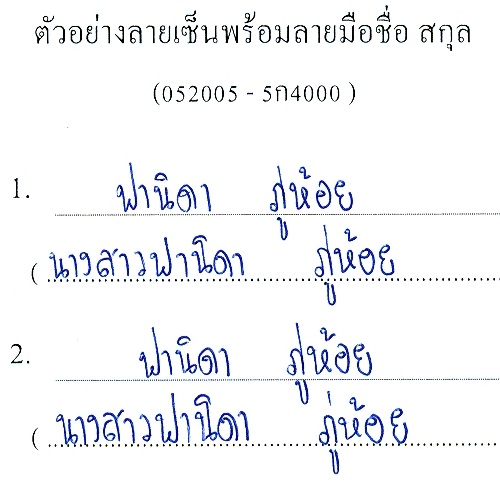 ตัวอย่างลายเซ็นพร้อมลายมือชื่อ สกุล
(052005 - 5ก4000 )
1. ฟานิดา ภู่ห้อย
( นางสาวฟานิดา ภู่ห้อย
2. ฟานิดา ภู่ห้อย
( นางสาวฟานิดา ภู่ห้อย